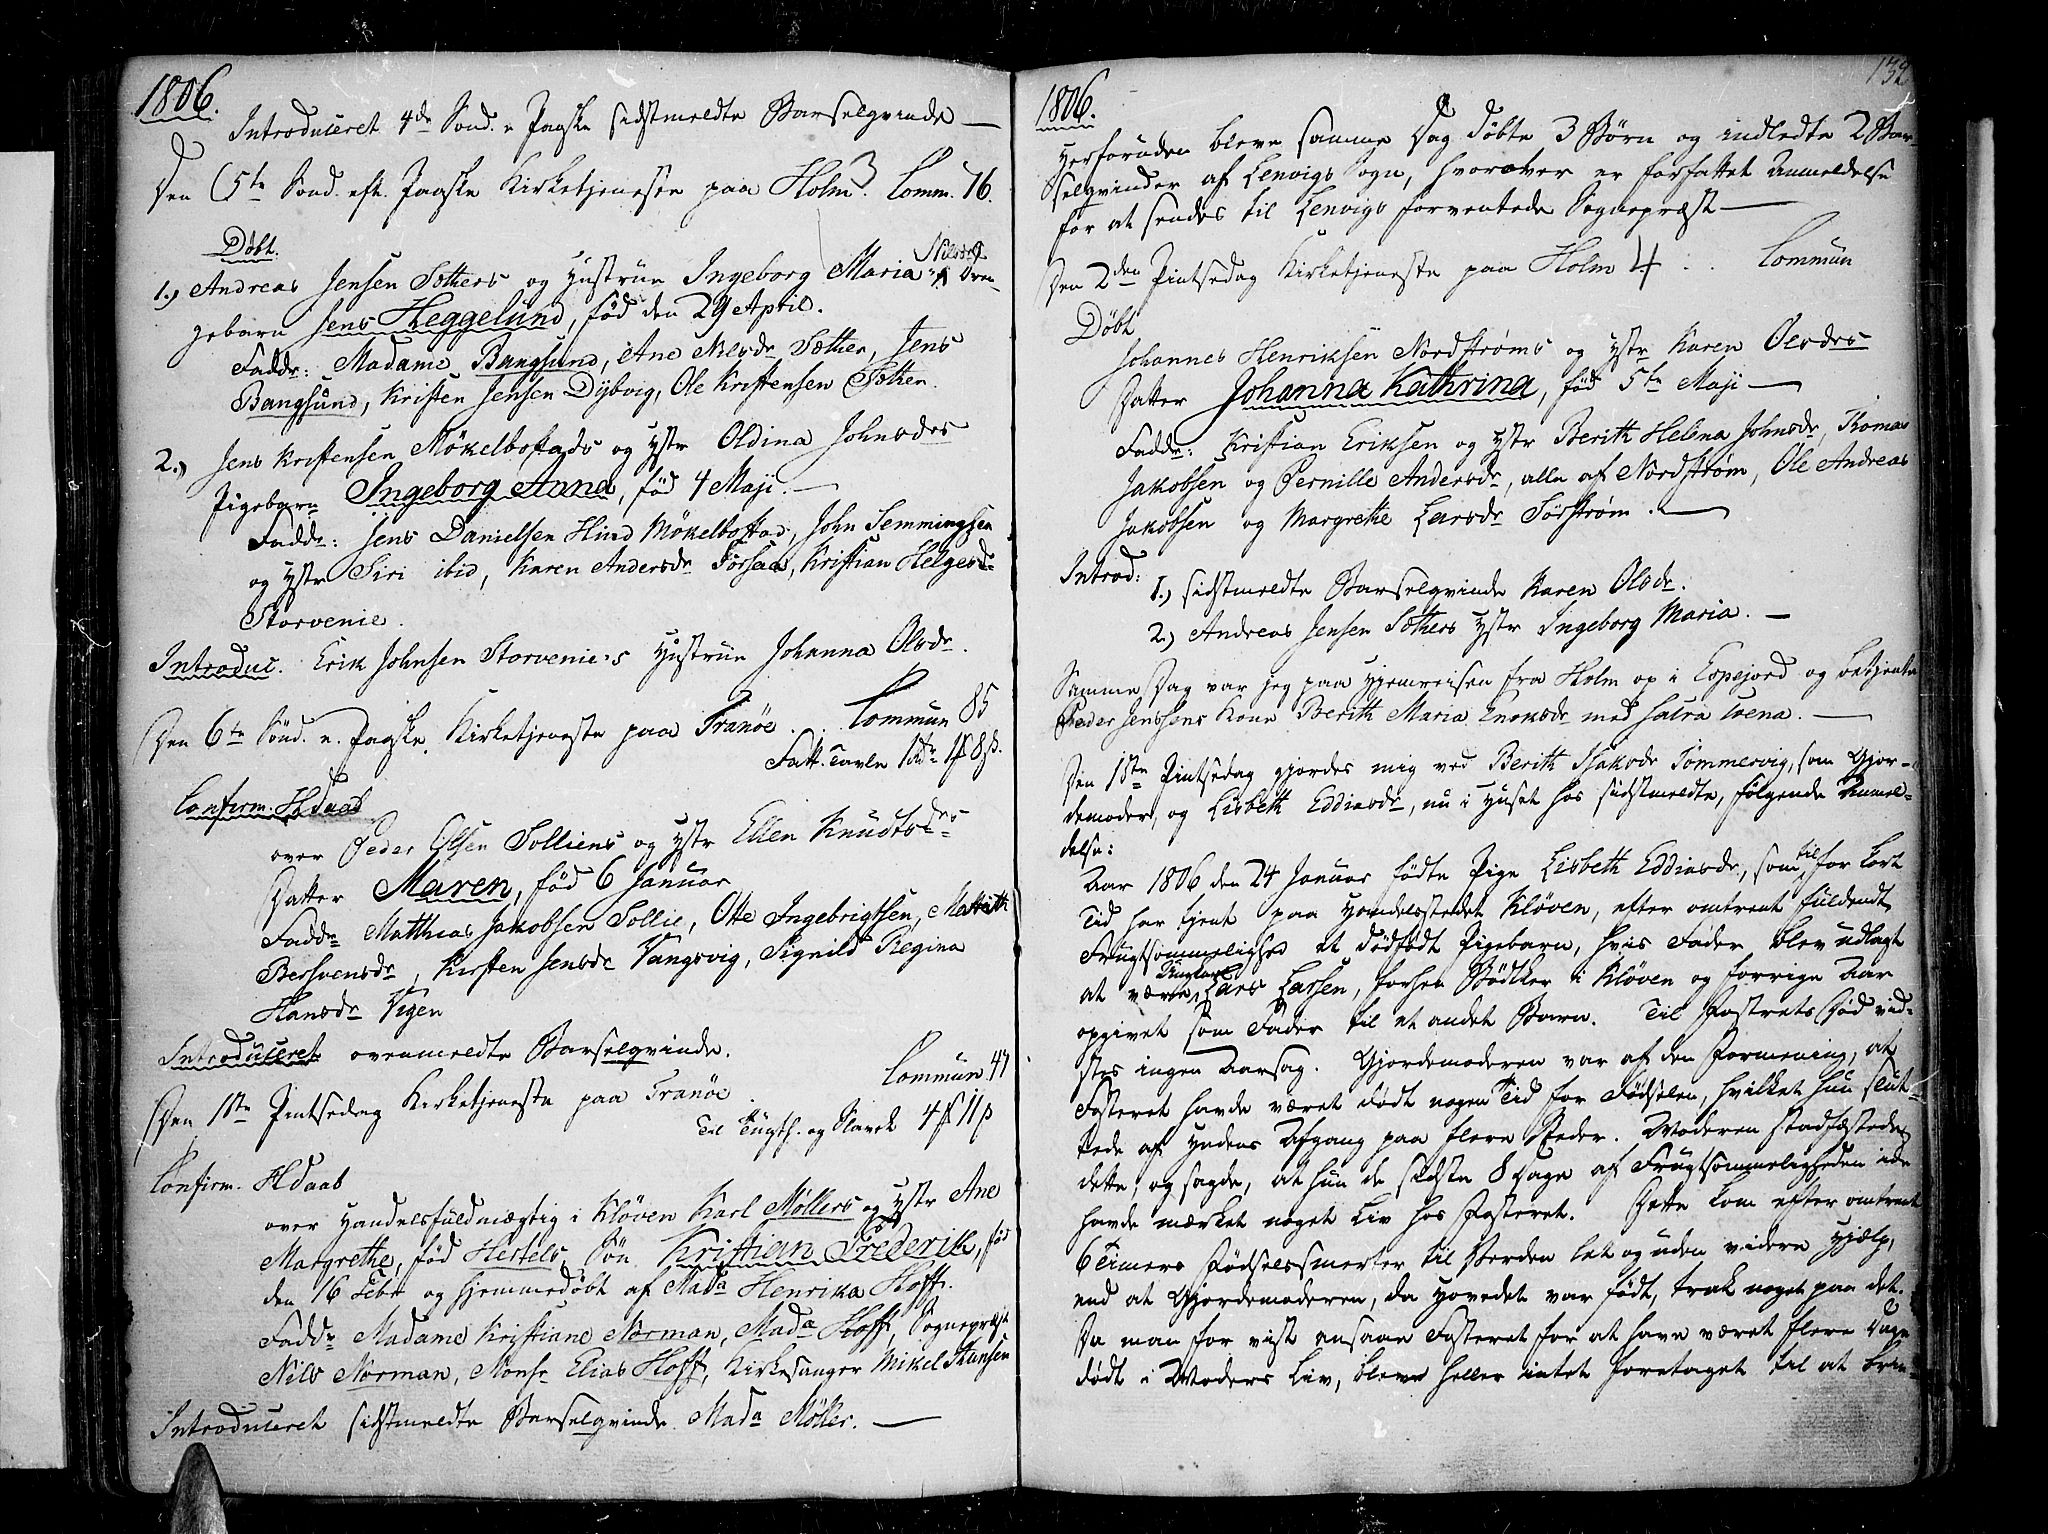 1806.
Introduceret 4de Sønd. e. Paaske sidstmeldte Barselqvinde —
Den 5te Sønd. eft. Paaske Kirketjenesten paa Holm 3. Comm. 76.
Døbt.
1.) Andreas Jensen Sothers og Hustrue Ingeborg Maria Nilsdr Dren-
gebarn Jens Heggelund, fød den 29 April.
Faddr: Madame Bangsund, Ane Nilsdr Sother, Jens
Bangsund, Kristen Jensen Dybvig, Ole Kristensen Sother.
2.) Jens Kristensen Mökelbostads og Hstr Oldina Johnsdrs
Pigebarn Ingeborg Anna, fød 4 Maji. —
Faddr: Jens Danielsen Hind Mökelbostad, John Semmingsen
og Hstr Siri ibid, Karen Andersdr Forsaa, Kristian Helgesd-
Storvenie.
Introduc. Erik Johnsen Storvenie's Hustrue Johanna Olsdr.
Den 6te Sønd. e. Paaske Kirketjeneste paa Tranöe . . . Commun 85
Fatt. Tavle 1 rdr 1 ₰ 8 ß.
Confirm. H. daab
over Peder Olsen Solliens og Hstr Ellen Knudtsdrs
Datter Maren, fød 6 Januar
Faddr Matthias Jakobsen Sollie, Otte Ingebrigtsen, Marith
Bersvensdr, Kirsten Jensdr Vangsvig, Signild Regina
Hansdr Vigen
Introduceret ovenmeldte Barselqvinde.
Den 1ste Pintsedag Kirketjeneste paa Tranöe . Commun 47
Til Tugth. og Slavek 4 ₰ 11 ß
Confirm. H daab
over Handelsfuldmægtig i Klöven Karl Møllers og Hstr Ane
Margrethe, fød Hertels, Søn Kristian Frederik, fød
den 16 Febr og hjemmedøbt af Mada Henrika Hoff.
Faddr Madame Kristiane Norman, Mada Hoff, Sognepræst
Nils Norman, Monsr Elias Hoff, Kirkesanger Mikel Hansen
Introduceret sidstmeldte Barselqvinde Mada Møller. —
132
1806.
Herforuden bleve samme Dag døbte 3 Børn og indledte 2 Bar-
selqvinder af Lenvigs Sogn, hvorover er forfattet Anmeldelse
for at sendes til Lenvigs forventede Sognepræst —
Den 2den Pintsedag Kirketjeneste paa Holm 4 . . Commun
Døbt
Johannes Henriksen Nordstrøms og Hstr Karen Olsdrs
Datter Johanna Kathrina, fød 5te Maji —
Faddr: Kristian Eriksen og Hstr Berith Helena Johnsdr, Thomas
Jakobsen og Pernille Andersdr, alle af Nordstrøm, Ole Andreas
Jakobsen og Margrethe Larsdr Sørstrøm. —
Introd:
1.) sidstmeldte Barselqvinde Karen Olsdr.
2.) Andreas Jensen Sothers Hstr Ingeborg Maria. —
Samme Dag var jeg paa Hjemreisen fra Holm op i Espejord og betjente
Peder Jenssens Kone Berith Maria Enoksdr med sacra coena. —
Den 1ste Pintsedag gjordes mig ved Berith Isaksdr Tømmervig, som Gjor-
demoder, og Lisbeth Eddiasdr, nu i Huset hos sidstmeldte, følgende Anmel-
delse:
Aar 1806 den 24 Januar fødte Pige Lisbeth Eddiasdr., som til for kort
Tid har tjent paa Handelsstedet Kløven, efter omtrent fuldendt
Frugtsommelighed et dødfødt Pigebarn, hvis Fader blev udlagt
at være Ungkarl Lars Larsen, forhen Bødtker i Kløven og forrige Aar
opgivet som Fader til et andet Barn. Til Fostrets Død vid-
stes ingen Aarsag. Gjordemoderen var af den Formening, at
Fosteret havde været dødt nogen Tid før Fødselen, hvilket hun slut-
tede af Hudens Afgang paa flere Steder. Moderen stadfæstede
dette, og sagde, at hun de sidste 8 Dage af Frugtsommeligheden ikke
havde mærket noget Liv hos Fosteret. Dette kom efter omtrent
6 Timers Fødselssmerter til Verden let og uden videre Hjælp,
end at Gjordemoderen, da Hovedet var født, trak noget paa det.
Da man for vist ansaae Fosteret for at have været flere Dage
dødt i Moders Liv, bleve heller intet foretaget til at brin-